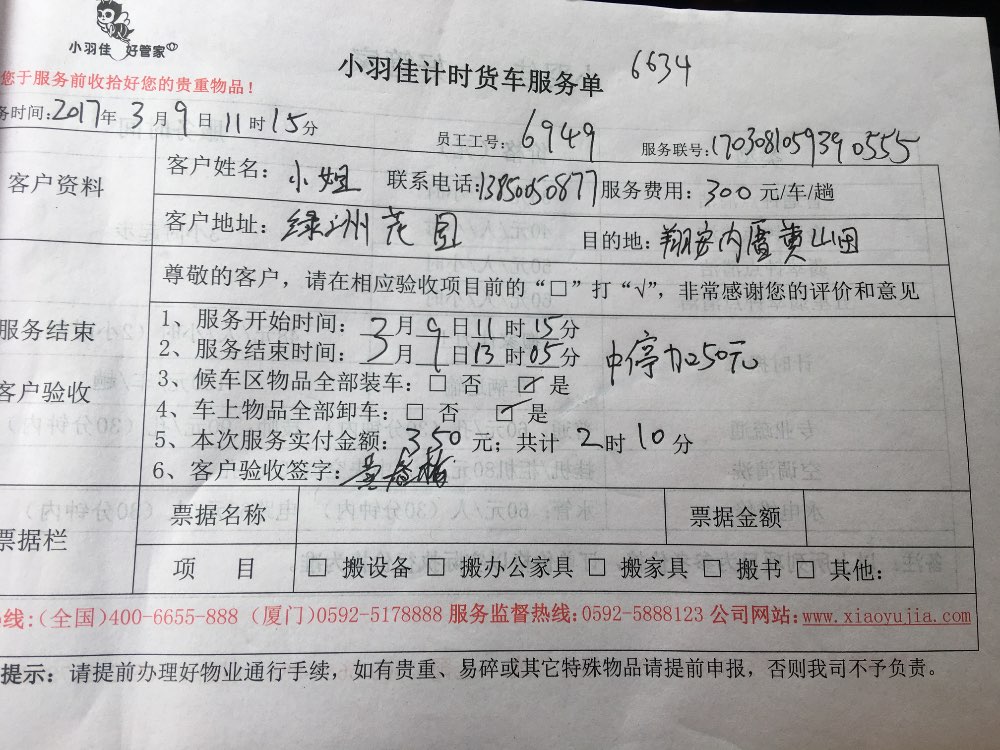 小羽佳 好管家
您于服务前收拾好您的贵重物品！
小羽佳计时货车服务单 6634
务时间：2017年 3月 9日 11时 15分
员工工号：6949
服务联号：170308105939 0555
客户资料
客户姓名：小姐 联系电话：13850050877 服务费用：300 元/车/趟
客户地址：绿洲花园 目的地：翔安内厝黄山田
尊敬的客户，请在相应验收项目前的“□”打“√”，非常感谢您的评价和意见
服务结束
客户验收
1、服务开始时间：3月 9日 11时 15分
2、服务结束时间：3月 9日 13时 05分 中停加250元
3、候车区物品全部装车：□ 否 ☑ 是
4、车上物品全部卸车：□ 否 ☑ 是
5、本次服务实付金额：350 元；共计 2时 10分
6、客户验收签字：
票据栏
票据名称 票据金额
项 目 □ 搬设备 □ 搬办公家具 □ 搬家具 □ 搬书 □ 其他：
线：(全国)400-6655-888 (厦门)0592-5178888 服务监督热线：0592-5888123 公司网站：www.xiaoyujia.com
提示：请提前办理好物业通行手续，如有贵重、易碎或其它特殊物品请提前申报，否则我司不予负责。